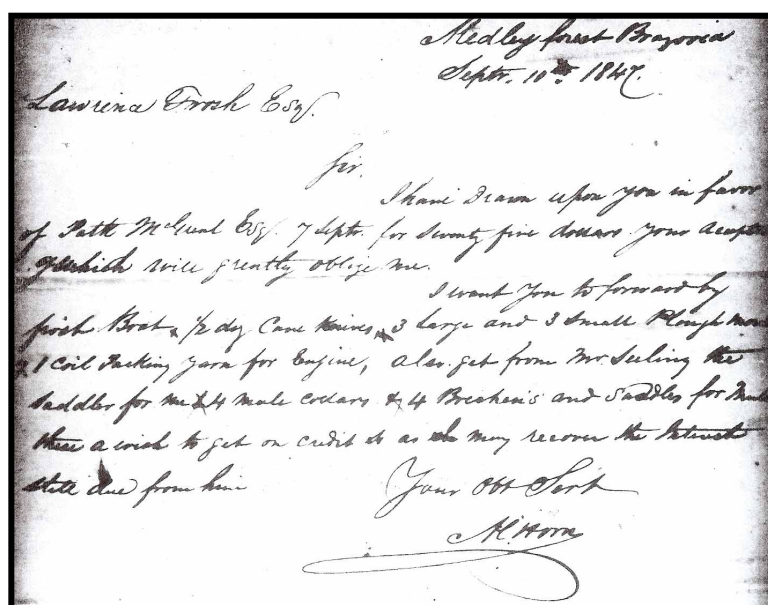 Medley forest Brazoria
Septr. 10th 1847.
Lawrence Frosh Esq.
Sir.
I have Drawn upon you in favor
of Patk Esq. 7 Septr. for Seventy five dollars your
of which will greatly oblige me.
I want you to forward by
first Boat, 1/2 dz Cane Knives, 3 Large and 3 Small Plough
& 1 Coil Packing yarn for Engine, also get from Mr. Seeling the
saddler for me 4 mule collars & 4 and Saddles for
these a wish to get on credit so as may recover the Interest
still due from him
Your Obt Sert
Horn